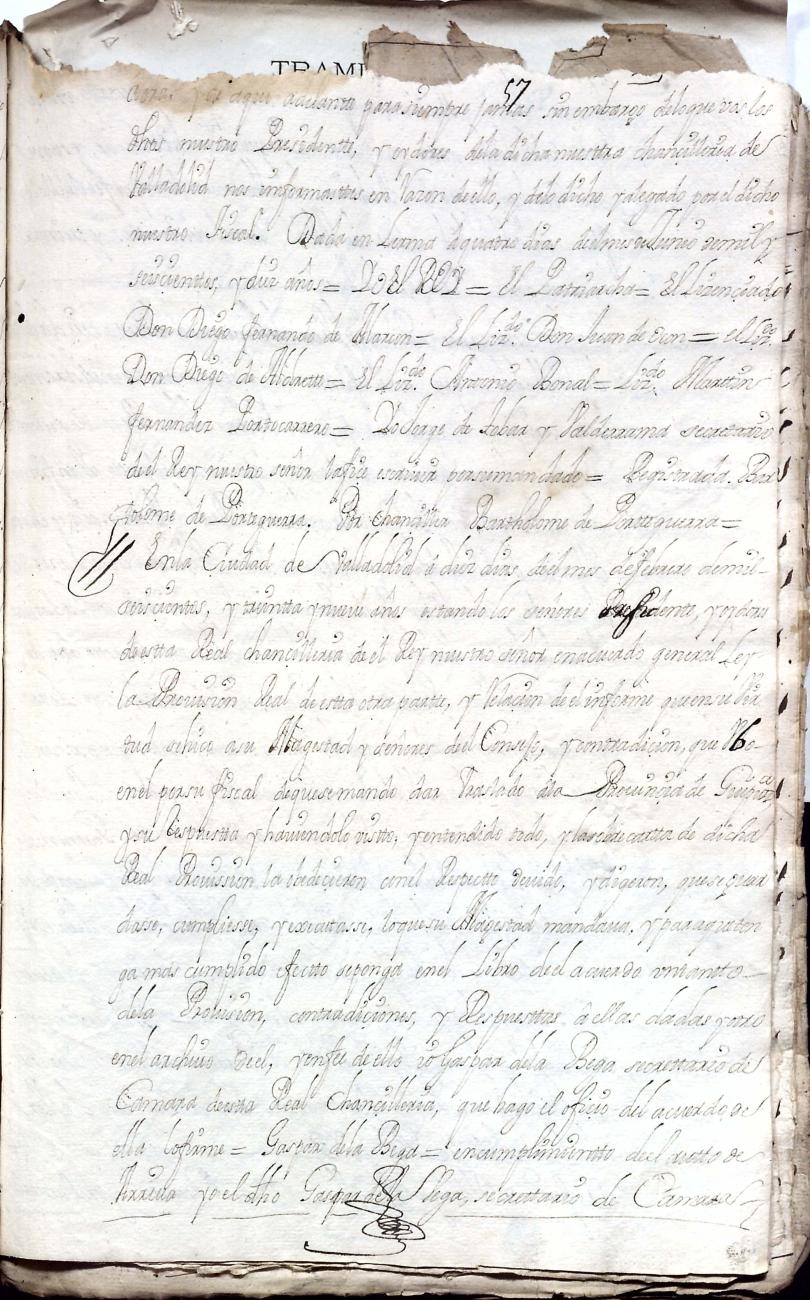 TRAMI
57
aora, y de aqui adelante para siempre jamas sin embargo de lo que vos los
dhos nuestro Presidente, y oydores de la dicha nuestra chancilleria de
Valladolid nos informastes en Razon de ello, y de lo dicho y alegado por el dicho
nuestro fiscal. Dada en Lerma a quatro dias del mes de Junio de mil y
seiscientos, y diez años = Yo El REY = El Patriarcha = El Licenciado
Don Diego fernando de Alarcon = El Liz.do Don Juan de = el Liz.do
Don Diego de Aldrette = El Liz.do Antonio Bonal = Liz.do Martin
fernandez Portocarrero = Yo Jorge de tobar y Valderrama secretario
de el Rey nuestro señor la fize escrivir por su mandado = Registrada. Bar
tolome de Porteguerra. Por chanciller Bartholome de Porteguerra =
En la Ciudad de Valladolid a diez dias del mes de febrero de mil
seiscientos, y treinta y nueve años estando los señores Presidente, y oydores
de estta Real chancilleria de el Rey nuestro señor en acuerdo general Ley
la Provision Real de estta otra partte, y Relacion de el informe que en su Vir
tud se hiço a su Magestad y señores del Consejo, y contradicion, que Vbo
en el por su fiscal de que se mando dar traslado a la Provincia de
y su Respuestta y haviendolo vistto, y entendido todo, y la sobrecartta de dicha
Real Provission la obedecieron con el Respectto devido, y digeron, que se guar
dasse, cumpliesse, y executasse, lo que su Magestad mandava, y para que ten
ga mas cumplido efectto se ponga en el Libro de el acuerdo vn tantto
de la Provision, contradiciones, y Respuesttas a ellas dadas y otro
en el archivo de el, y en fee de ello io Gaspar de la Bega secrettario de
Camara de estta Real Chancilleria, que hago el oficio del acuerdo de
ella lo firme = Gaspar de la Bega = en cumplimientto de el autto de
Arriva yo el dho Gaspar de la Vega, secrettario de Camara